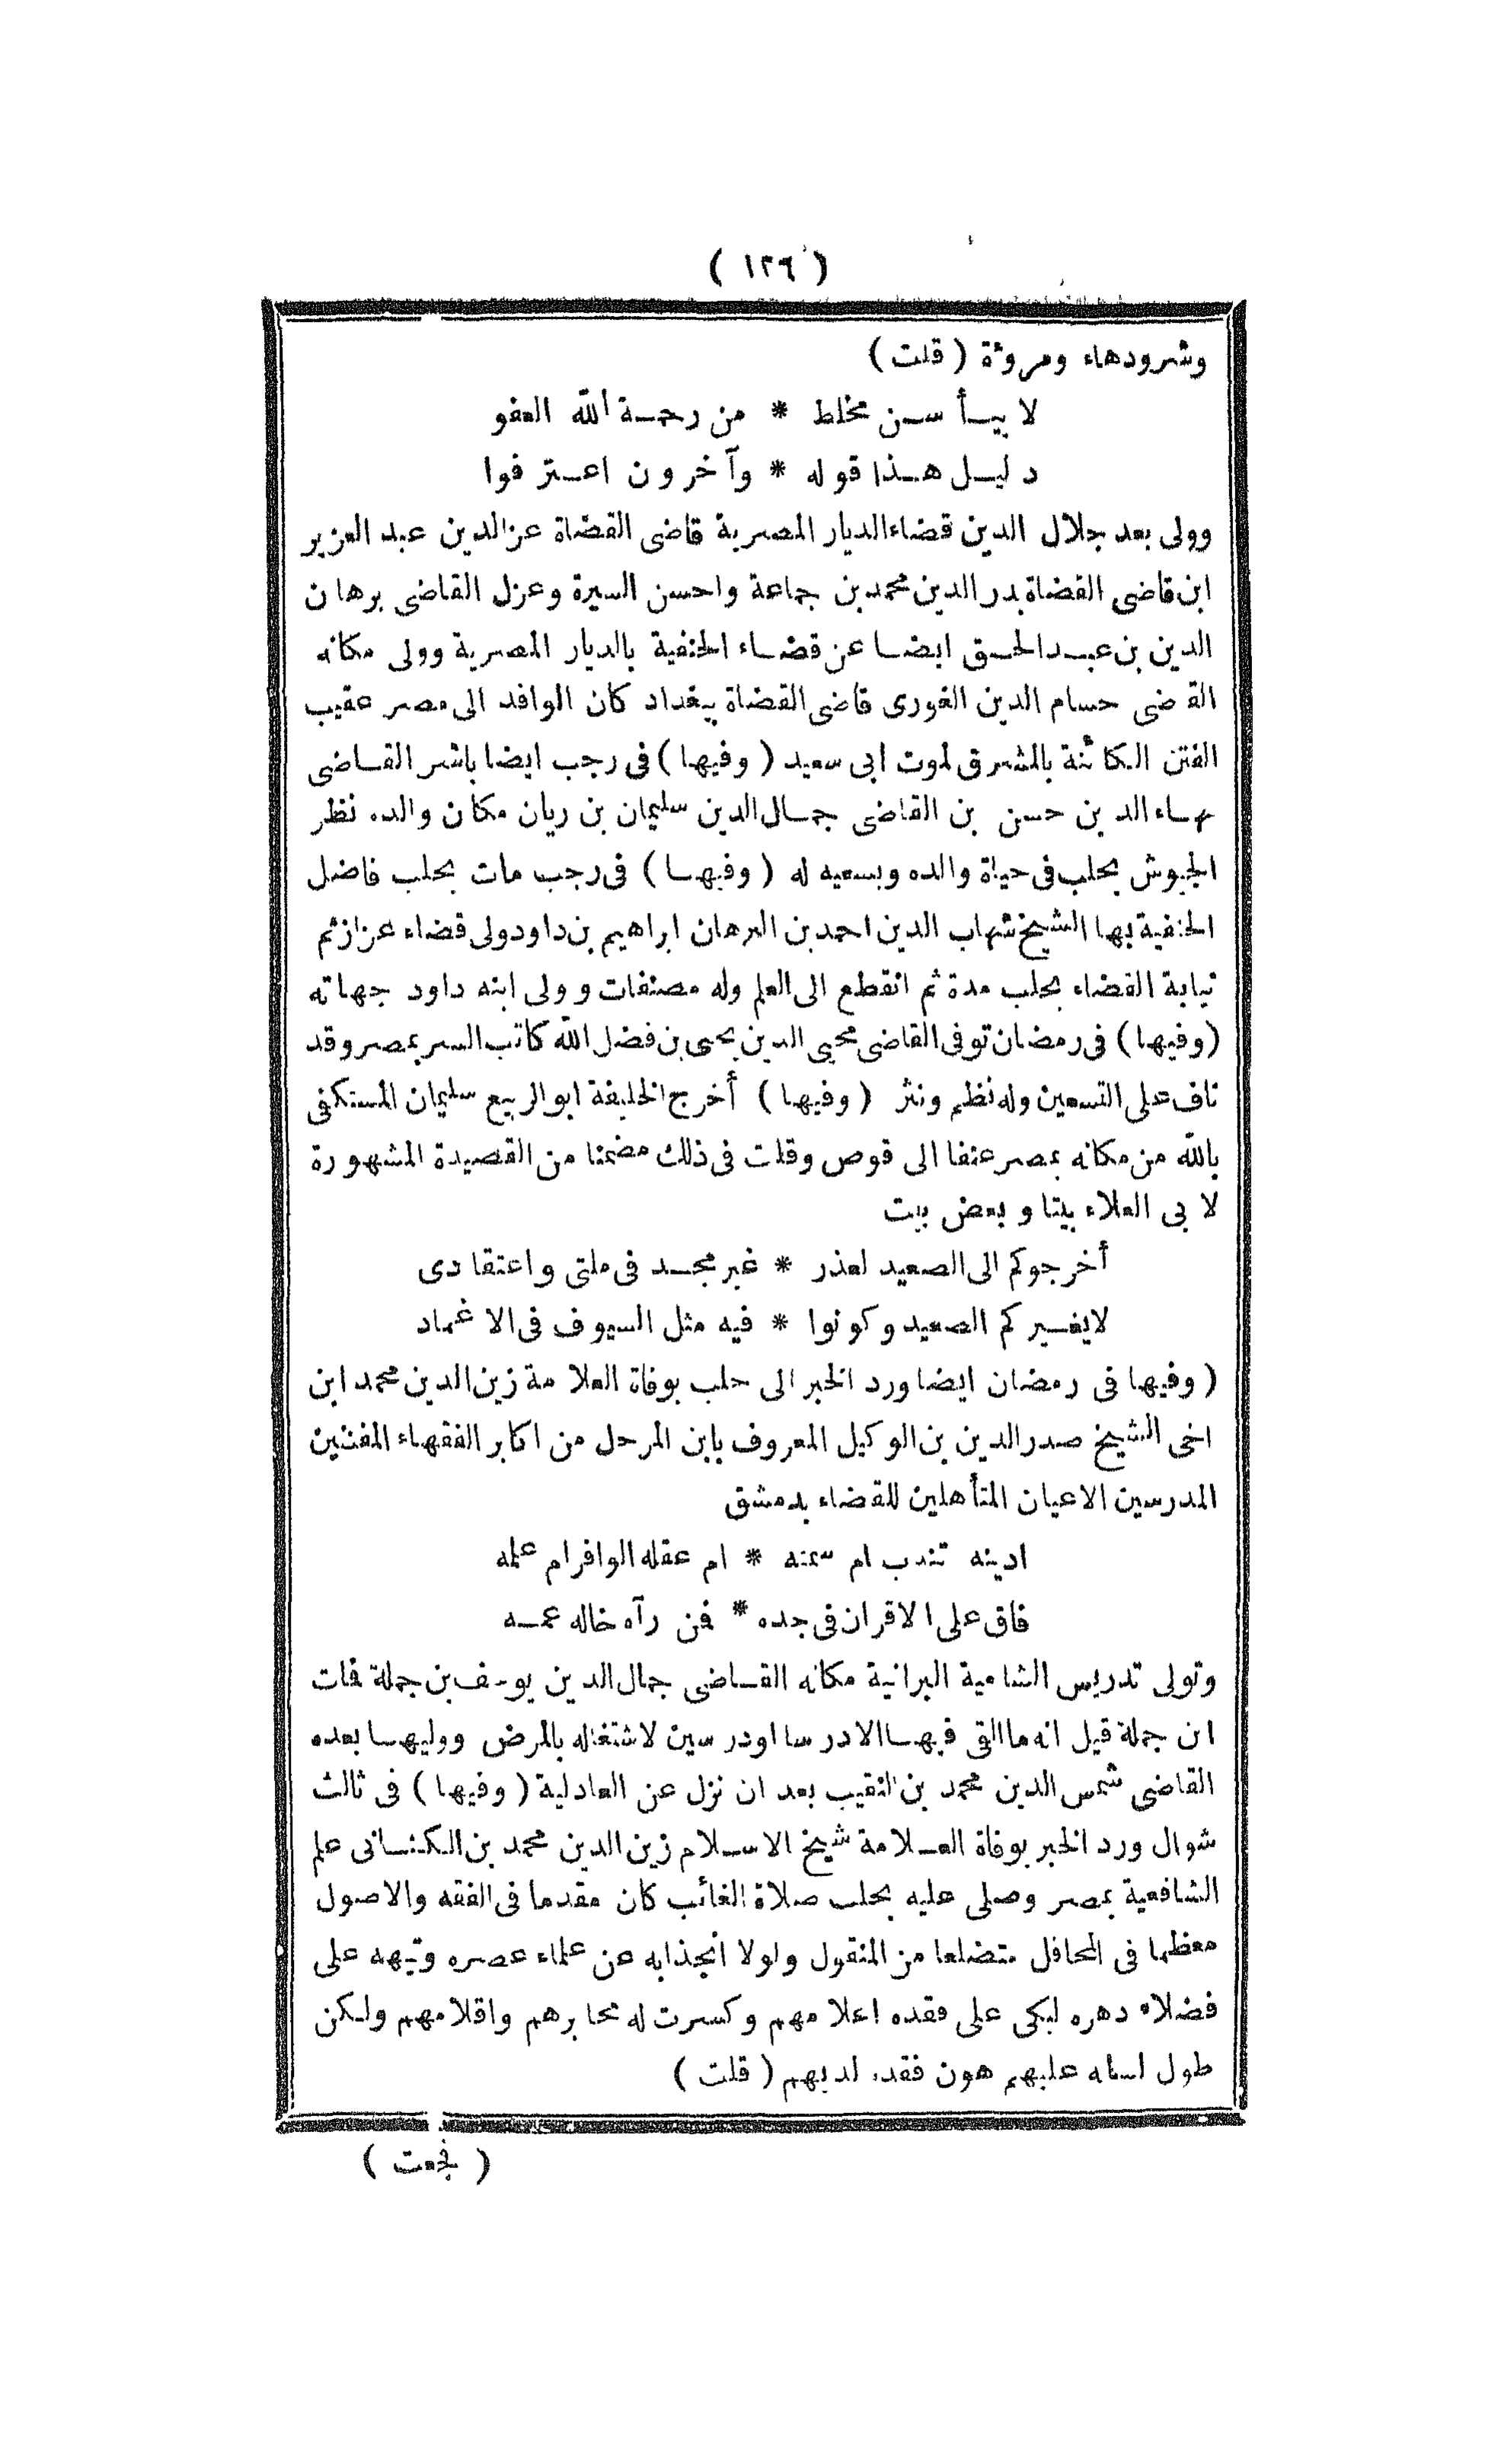 ( ١٢٦ )
وشرودهاء ومروئة ( قلت )
لا ييـأ سـن مخلط * من رحمـة الله العفو
دليـل هـذا قوله * وآخرون اعـترفوا
وولى بعد جلال الدين قضاء الديار المصرية قاضى القضاة عز الدين عبد العزيز
ابن قاضى القضاة بدر الدين محمد بن جماعة واحسن السيرة وعزل القاضى برهان
الدين بن عبـد الحـق ايضـا عن قضـاء الحنفية بالديار المصرية وولى مكانه
القاضى حسام الدين الغورى قاضى القضاة ببغداد كان الوافد الى مصر عقيب
الفتن الكائنة بالمشرق لموت ابى سعيد ( وفيها ) فى رجب ايضا باشر القـاضى
بهـاء الدين حسن بن القاضى جمـال الدين سليمان بن ريان مكان والده نظر
الجيوش بحلب فى حياة والده وبسعيه له ( وفيهـا ) فى رجب مات بحلب فاضل
الحنفية بها الشيخ شهاب الدين احمد بن البرهان ابراهيم بن داود ولى قضاء عزاز ثم
نيابة القضاء بحلب مدة ثم انقطع الى العلم وله مصنفات وولى ابنه داود جهاته
( وفيها ) فى رمضان توفى القاضى محيى الدين يحيى بن فضل الله كاتب السر بمصر وقد
ناف على التسعين وله نظم ونثر ( وفيها ) أخرج الخليفة ابو الربيع سليمان المستكفى
بالله من مكانه بمصر عنفا الى قوص وقلت فى ذلك مضمنا من القصيدة المشهورة
لابى العلاء بيتا وبعض بيت
أخرجوكم الى الصعيد لعذر * غير مجـد فى ملتى واعتقادى
لا يغـيركم الصعيد وكونوا * فيه مثل السيوف فى الاغماد
( وفيها فى رمضان ايضا ورد الخبر الى حلب بوفاة العلامة زين الدين محمد ابن
اخى الشيخ صدر الدين بن الوكيل المعروف بابن المرحل من اكابر الفقهاء المفتين
المدرسين الاعيان المتأهلين للقضاء بدمشق
ادينه تندب ام سمته * ام عقله الوافر ام علمه
فاق على الاقران فى جده * فمن رآه خاله عمـه
وتولى تدريس الشامية البرانية مكانه القـاضى جمال الدين يوسف بن جملة فات
ابن جملة قيل انه ما القى فيهـا الا درسا او درسين لاشتغاله بالمرض ووليهـا بعده
القاضى شمس الدين محمد بن النقيب بعد ان نزل عن العادلية ( وفيها ) فى ثالث
شوال ورد الخبر بوفاة العـلامة شيخ الاسـلام زين الدين محمد بن الكنـانى علم
الشافعية بمصر وصلى عليه بحلب صلاة الغائب كان مقدما فى الفقه والاصول
معظما فى المحافل متضلعا من المنقول ولولا انجذابه عن علماء عصره وتيهه على
فضلاء دهره لبكى على فقده اعلامهم وكسرت له محابرهم واقلامهم ولكن
طول لسانه عليهم هون فقده لديهم ( قلت )
( فجعت )